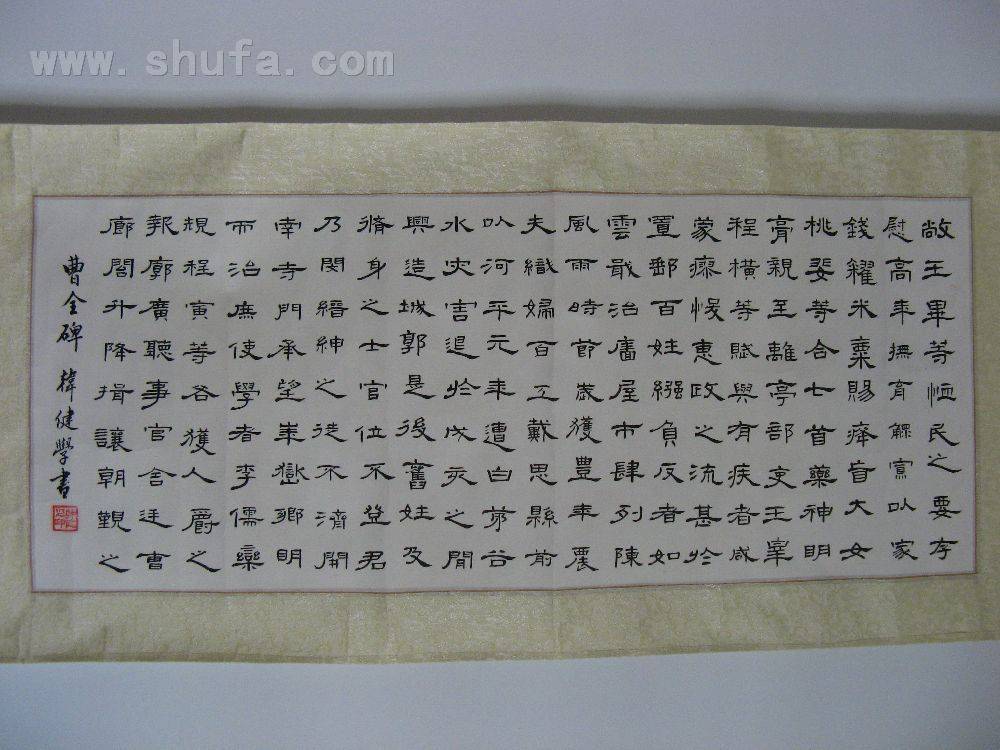 www.shufa.com
敞王畢等恤民之要存
慰高年撫育鰥寡以家
錢糴米粟賜癃盲大女
桃婓等合七首藥神明
膏親至離亭部吏王宰
程橫等賦與有疾者咸
蒙瘳悛惠政之流甚於
置郵百姓繦負反者如
雲戢治廧屋市肆列陳
風雨時節歲獲豐年農
夫織婦百工戴恩縣前
以河平元年遭白茅谷
水災害退於戊亥之間
興造城郭是後舊姓及
脩身之士官位不登君
乃閔縉紳之徒不濟開
南寺門承望華嶽鄉明
而治庶使學者李儒欒
規程寅等各獲人爵之
報廓廣聽事官舍廷曹
廊閣升降揖讓朝覲之
曹全碑 健學書